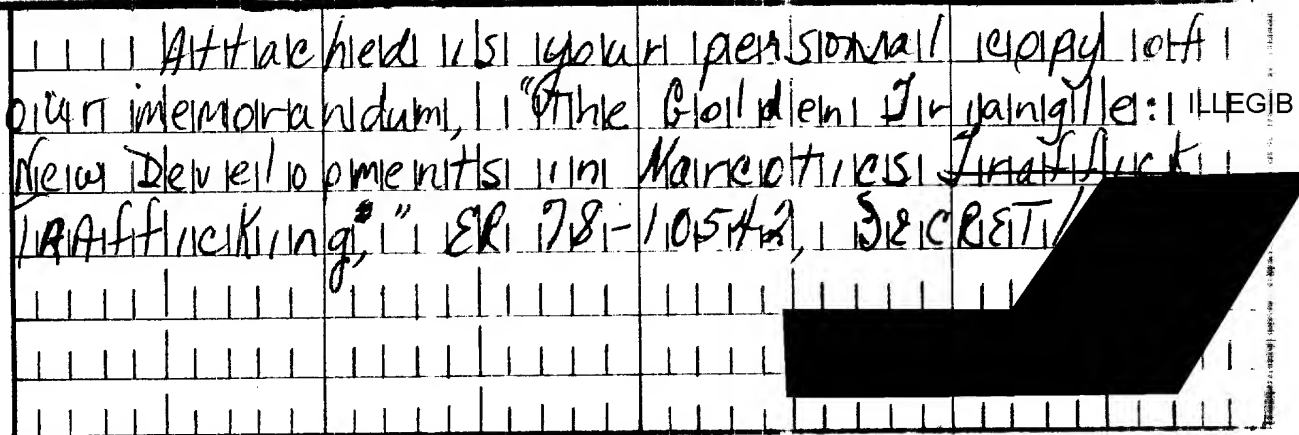 Attached is your personal copy of
our memorandum, "The Golden Triangle: ILLEGIB
New Developments in Narcotics Traffick
TRAfficking," ER 78-10542, SECRET/